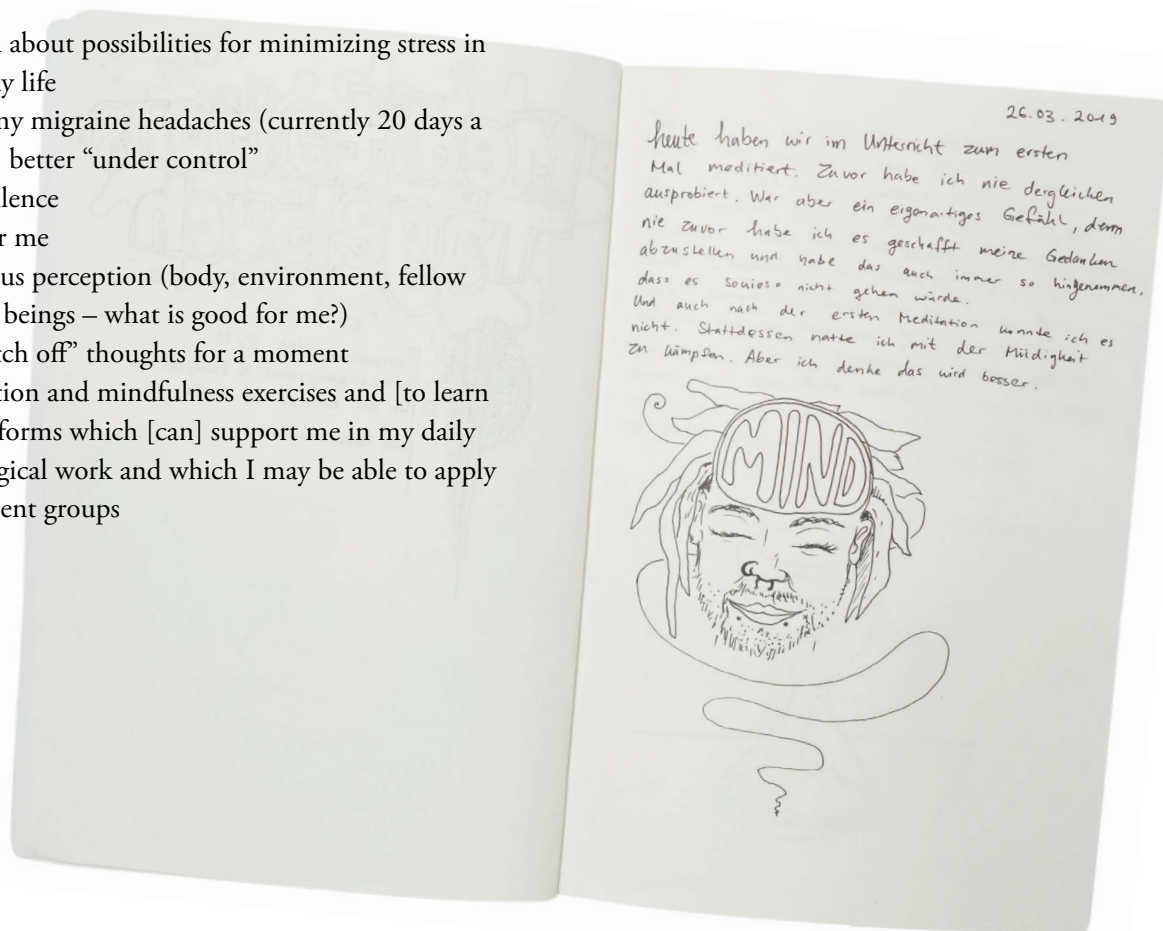 about possibilities for minimizing stress in
y life
ny migraine headaches (currently 20 days a
better “under control”
ilence
r me
us perception (body, environment, fellow
beings – what is good for me?)
tch off” thoughts for a moment
tion and mindfulness exercises and [to learn
forms which [can] support me in my daily
gical work and which I may be able to apply
ent groups
26.03.2019
heute haben wir im Unterricht zum ersten
Mal meditiert. Zuvor habe ich nie dergleichen
ausprobiert. War aber ein eigenartiges Gefühl, denn
nie zuvor habe ich es geschafft meine Gedanken
abzustellen und habe das auch immer so hingenommen,
dass es sowieso nicht gehen würde.
Und auch nach der ersten Meditation konnte ich es
nicht. Stattdessen hatte ich mit der Müdigkeit
zu kämpfen. Aber ich denke das wird besser.
MIND